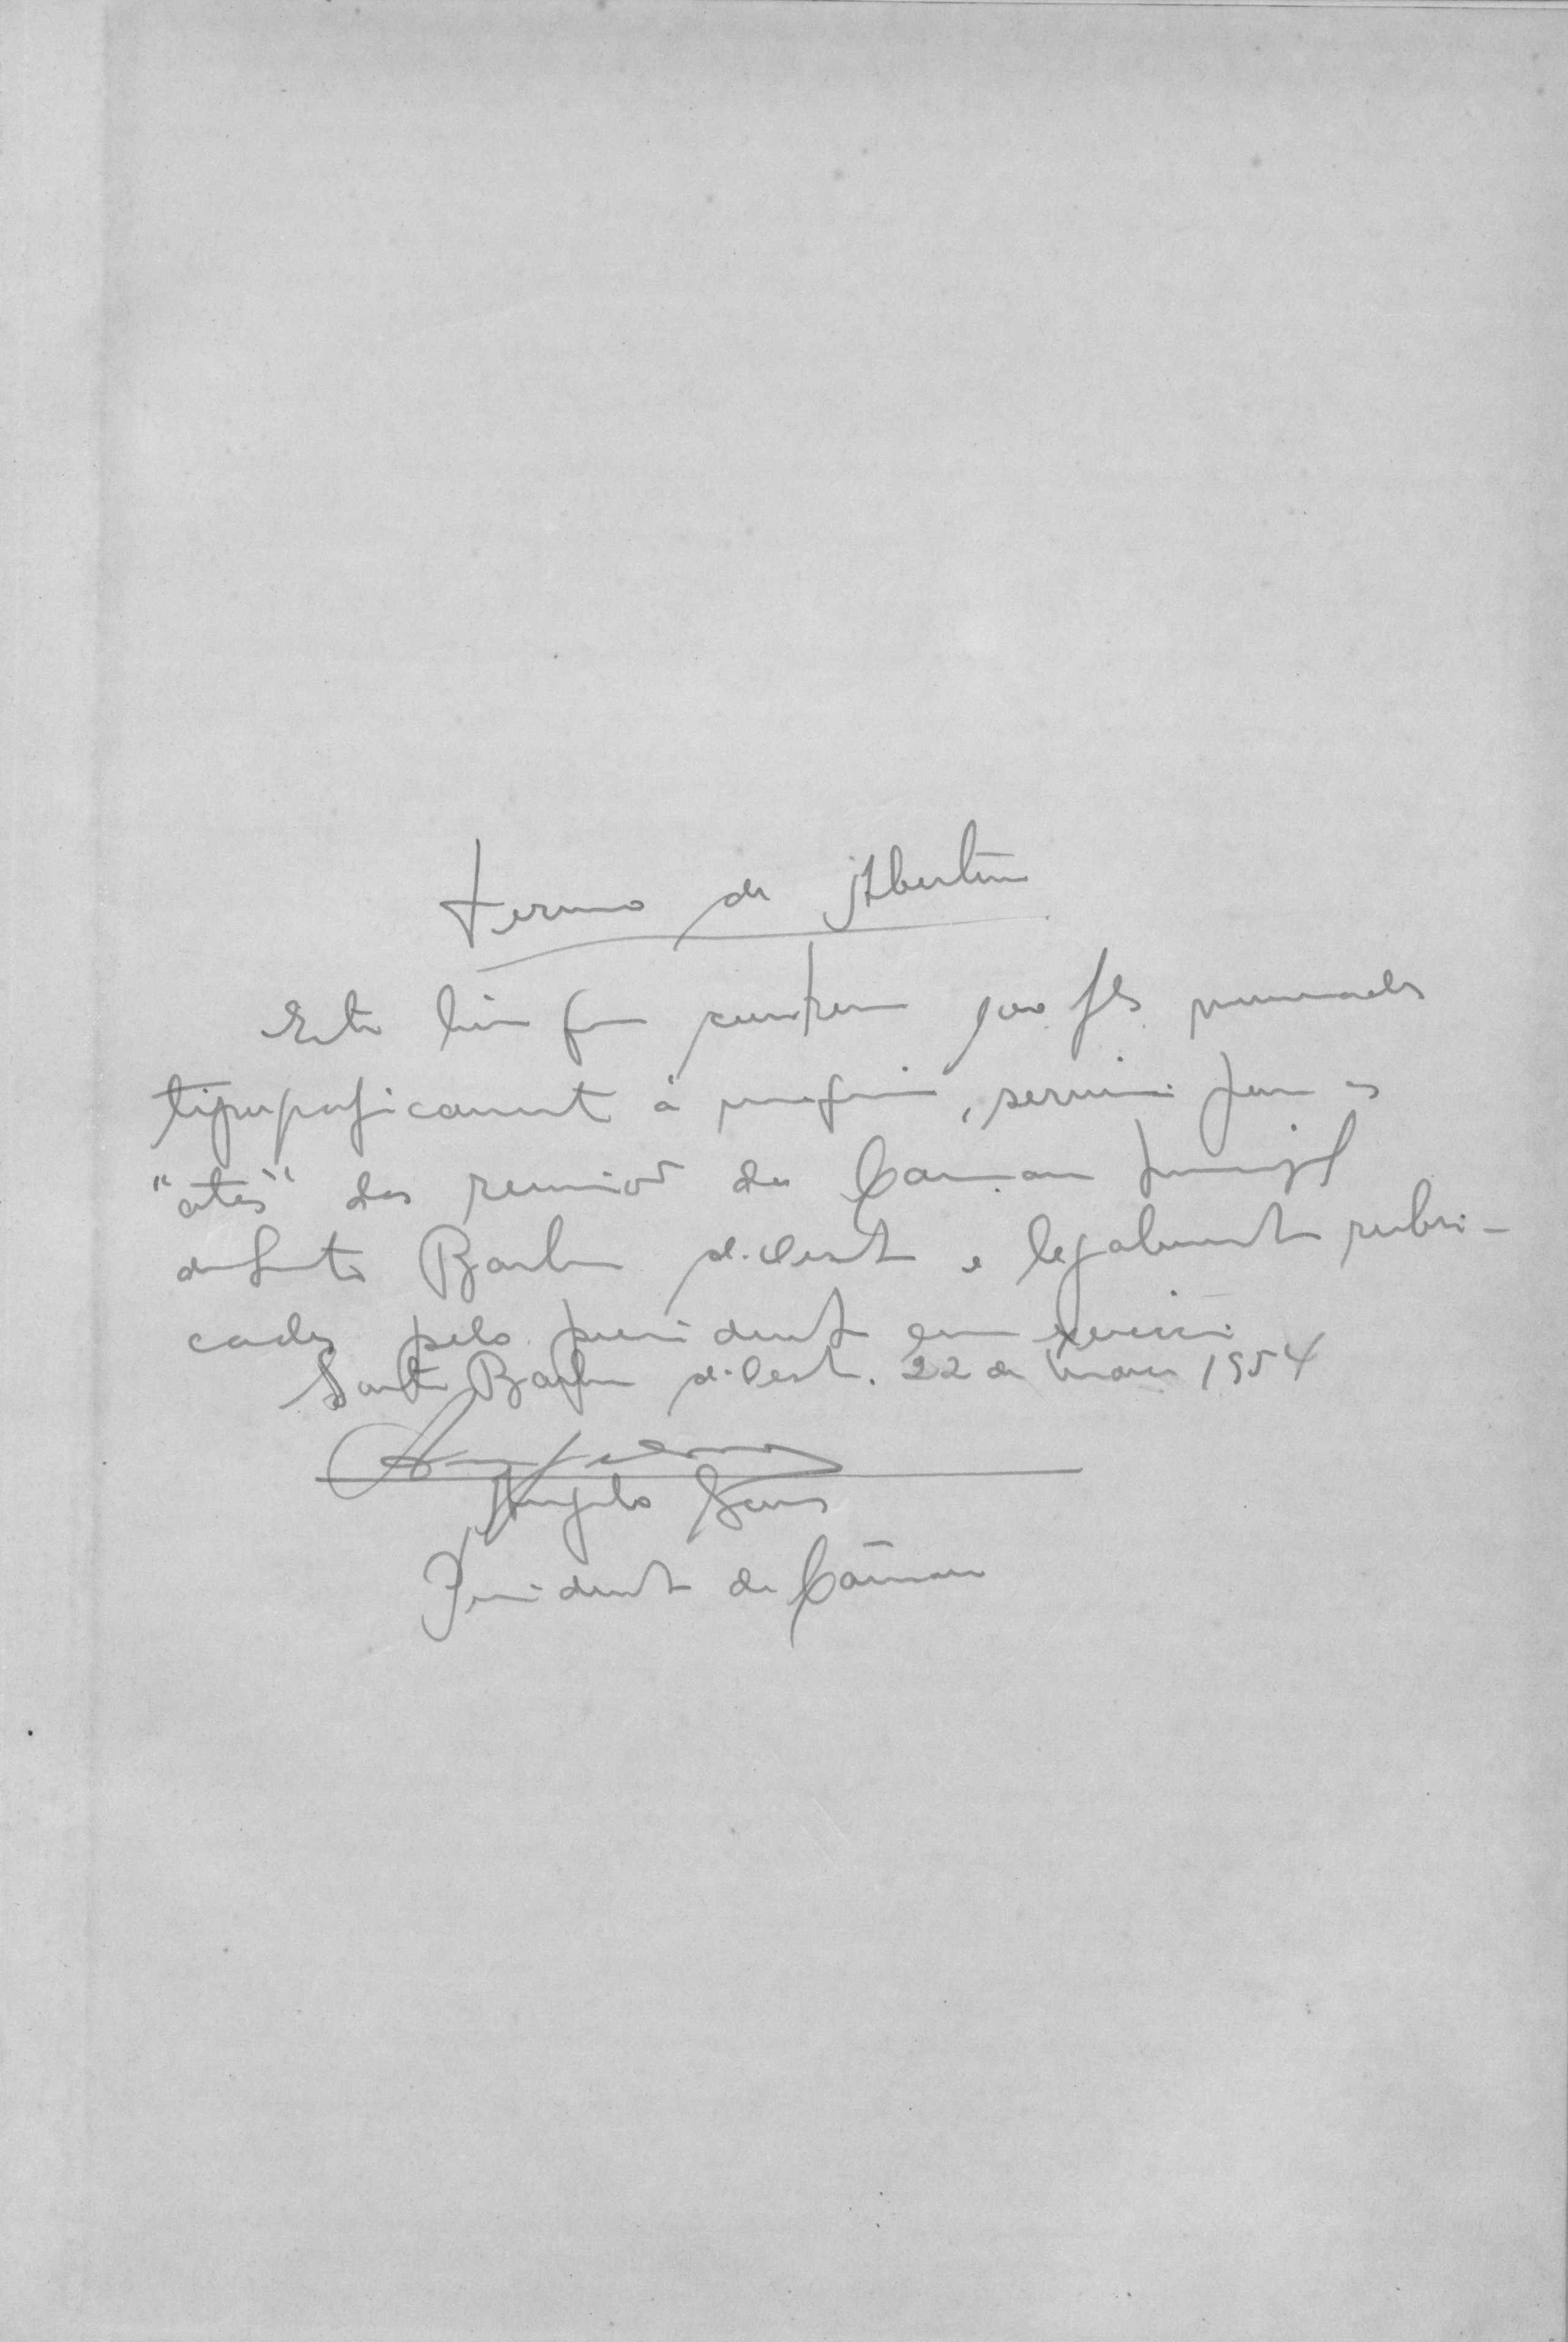 Termo de Abertura
Este livro que contem 200 fls. numeradas
tipograficamente à , servirá para as
"atas" das reuniões da Camara Municipal
de Santa Barbara d'Oeste e legalmente rubri-
cadas pelo presidente em exercicio
Santa Barbara d'Oeste. 22 de março 1954
Angelo Sans
Presidente da Câmara